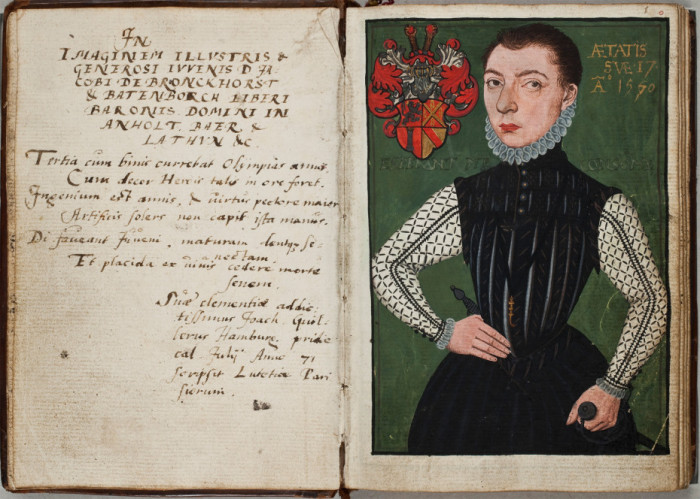 IN
IMAGINEM ILLUSTRIS &
GENEROSI IVVENIS D JA
COBI DE BRONCKHORST
& BATENBORCH LIBERI
BARONIS DOMINI IN
ANHOLT BAER &
LATHVN &c
Tertia cum binis curretat Olympias annus
Cum decor Herois talis in ore foret.
Ingenium est annis, & virtus pectore maior
Artificis solers non capit ista manus.
Di faveant Juveni, maturam
senectam
Et placida ex nimis cedere morte
senem.
Suae clementiae addic-
tissimus Joach. 
Hamburg. pridie
cal Julij Anno 71
scripsit Lutetiae Pari
siorum.
ÆTATIS
SVÆ 17
Aº 1570